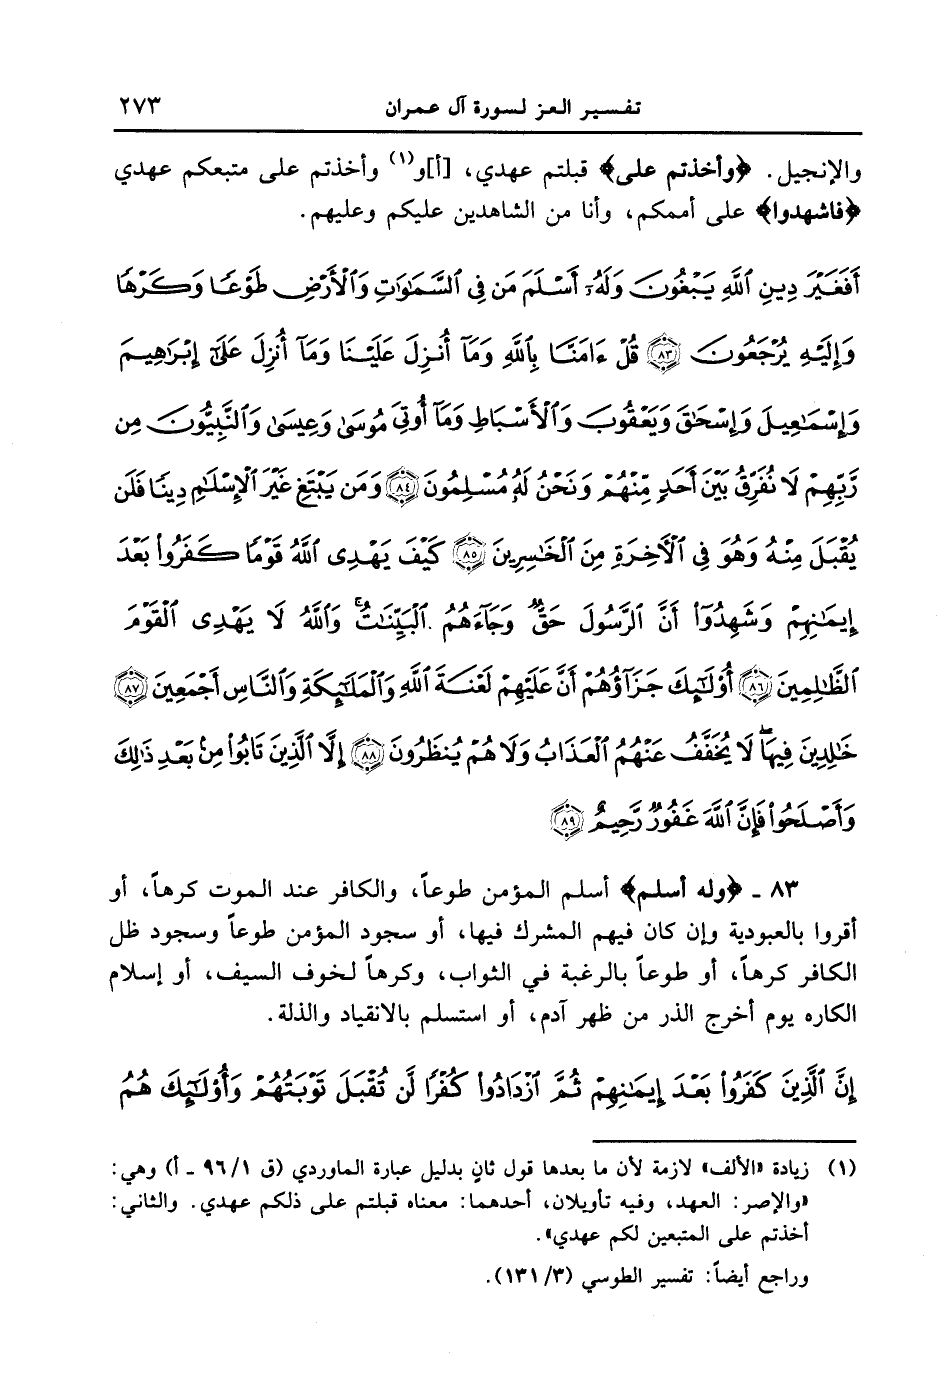 تفسير العز لسورة آل عمران ٢٧٣
والإنجيل. ﴿وأخذتم على﴾ قبلتم عهدي، [أ]و(١) وأخذتم على متبعكم عهدي
﴿فاشهدوا﴾ على أممكم، وأنا من الشاهدين عليكم وعليهم.
أَفَغَيْرَ دِينِ ٱللَّهِ يَبْغُونَ وَلَهُۥٓ أَسْلَمَ مَن فِى ٱلسَّمَٰوَٰتِ وَٱلْأَرْضِ طَوْعًا وَكَرْهًا
وَإِلَيْهِ يُرْجَعُونَ ﴿٨٣﴾ قُلْ ءَامَنَّا بِٱللَّهِ وَمَآ أُنزِلَ عَلَيْنَا وَمَآ أُنزِلَ عَلَىٰٓ إِبْرَٰهِيمَ
وَإِسْمَٰعِيلَ وَإِسْحَٰقَ وَيَعْقُوبَ وَٱلْأَسْبَاطِ وَمَآ أُوتِىَ مُوسَىٰ وَعِيسَىٰ وَٱلنَّبِيُّونَ مِن
رَّبِّهِمْ لَا نُفَرِّقُ بَيْنَ أَحَدٍ مِّنْهُمْ وَنَحْنُ لَهُۥ مُسْلِمُونَ ﴿٨٤﴾ وَمَن يَبْتَغِ غَيْرَ ٱلْإِسْلَٰمِ دِينًا فَلَن
يُقْبَلَ مِنْهُ وَهُوَ فِى ٱلْأَخِرَةِ مِنَ ٱلْخَٰسِرِينَ ﴿٨٥﴾ كَيْفَ يَهْدِى ٱللَّهُ قَوْمًا كَفَرُوا۟ بَعْدَ
إِيمَٰنِهِمْ وَشَهِدُوٓا۟ أَنَّ ٱلرَّسُولَ حَقٌّ وَجَآءَهُمُ ٱلْبَيِّنَٰتُ ۚ وَٱللَّهُ لَا يَهْدِى ٱلْقَوْمَ
ٱلظَّٰلِمِينَ ﴿٨٦﴾ أُو۟لَٰٓئِكَ جَزَآؤُهُمْ أَنَّ عَلَيْهِمْ لَعْنَةَ ٱللَّهِ وَٱلْمَلَٰٓئِكَةِ وَٱلنَّاسِ أَجْمَعِينَ ﴿٨٧﴾
خَٰلِدِينَ فِيهَا لَا يُخَفَّفُ عَنْهُمُ ٱلْعَذَابُ وَلَا هُمْ يُنظَرُونَ ﴿٨٨﴾ إِلَّا ٱلَّذِينَ تَابُوا۟ مِنۢ بَعْدِ ذَٰلِكَ
وَأَصْلَحُوا۟ فَإِنَّ ٱللَّهَ غَفُورٌ رَّحِيمٌ ﴿٨٩﴾
٨٣ ـ ﴿وله أسلم﴾ أسلم المؤمن طوعاً، والكافر عند الموت كرهاً، أو
أقروا بالعبودية وإن كان فيهم المشرك فيها، أو سجود المؤمن طوعاً وسجود ظل
الكافر كرهاً، أو طوعاً بالرغبة في الثواب، وكرهاً لخوف السيف، أو إسلام
الكاره يوم أخرج الذر من ظهر آدم، أو استسلم بالانقياد والذلة.
إِنَّ ٱلَّذِينَ كَفَرُوا۟ بَعْدَ إِيمَٰنِهِمْ ثُمَّ ٱزْدَادُوا۟ كُفْرًا لَّن تُقْبَلَ تَوْبَتُهُمْ وَأُو۟لَٰٓئِكَ هُمُ
(١) زيادة «الألف» لازمة لأن ما بعدها قول ثانٍ بدليل عبارة الماوردي (ق ٩٦/١ ـ أ) وهي:
«والإصر: العهد، وفيه تأويلان، أحدهما: معناه قبلتم على ذلكم عهدي. والثاني:
أخذتم على المتبعين لكم عهدي».
وراجع أيضاً: تفسير الطوسي (١٣١/٣).